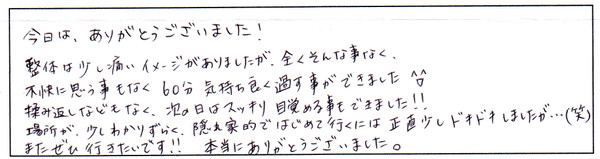 今日は、ありがとうございました!
整体は少し痛いイメージがありましたが、全くそんな事なく、
不快に思う事もなく 60分 気持ち良く過す事ができました ^o^
揉み返しなどもなく、次の日はスッキリ目覚める事もできました!!
場所が、少しわかりずらく、隠れ家的ではじめて行くには正直少しドキドキしましたが…(笑)
またぜひ行きたいです!! 本当にありがとうございました。